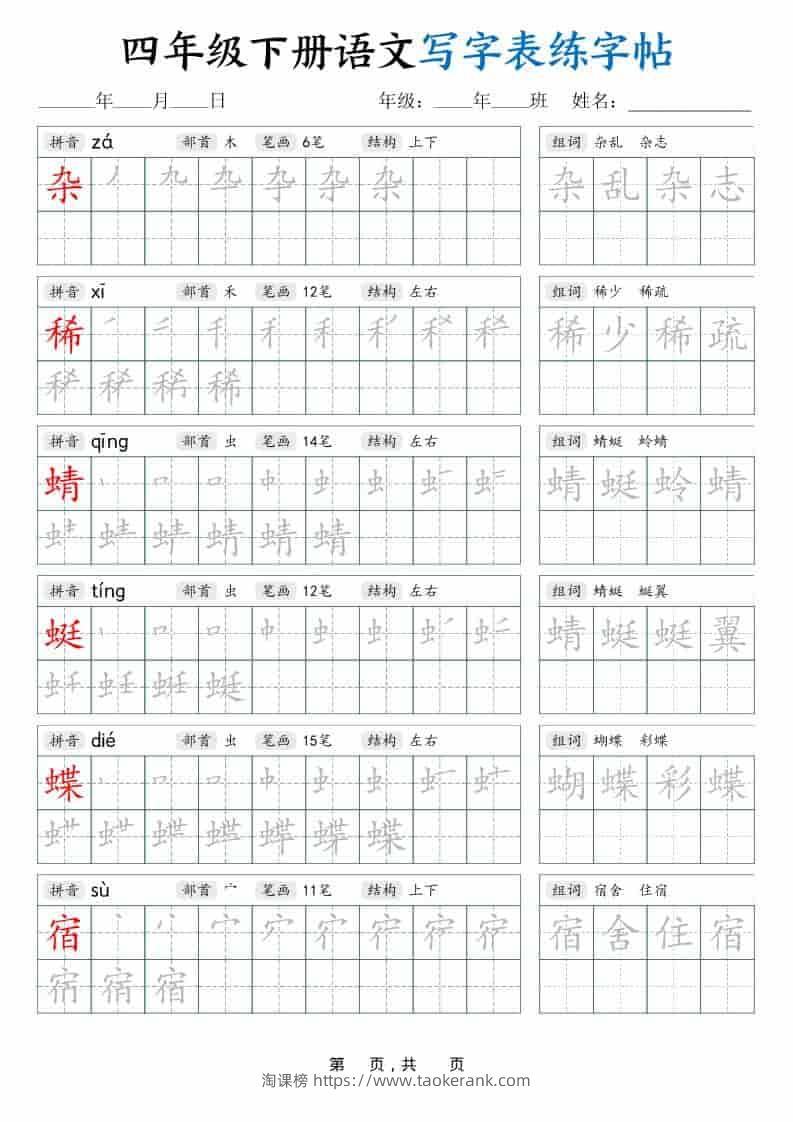 四年级下册语文写字表练字帖
____年____月____日 年级：____年____班 姓名：____________
拼音 zá 部首 木 笔画 6笔 结构 上下 组词 杂乱 杂志
杂 杂 杂乱杂志
拼音 xī 部首 禾 笔画 12笔 结构 左右 组词 稀少 稀疏
稀 稀少稀疏
稀
拼音 qīng 部首 虫 笔画 14笔 结构 左右 组词 蜻蜓 蛉蜻
蜻 蜻蜓蛉蜻
蜻
拼音 tíng 部首 虫 笔画 12笔 结构 左右 组词 蜻蜓 蜓翼
蜓 蜻蜓蜓翼
蜓
拼音 dié 部首 虫 笔画 15笔 结构 左右 组词 蝴蝶 彩蝶
蝶 蝴蝶彩蝶
蝶
拼音 sù 部首 宀 笔画 11笔 结构 上下 组词 宿舍 住宿
宿 宿舍住宿
宿
第 页，共 页
淘课榜 https://www.taokerank.com